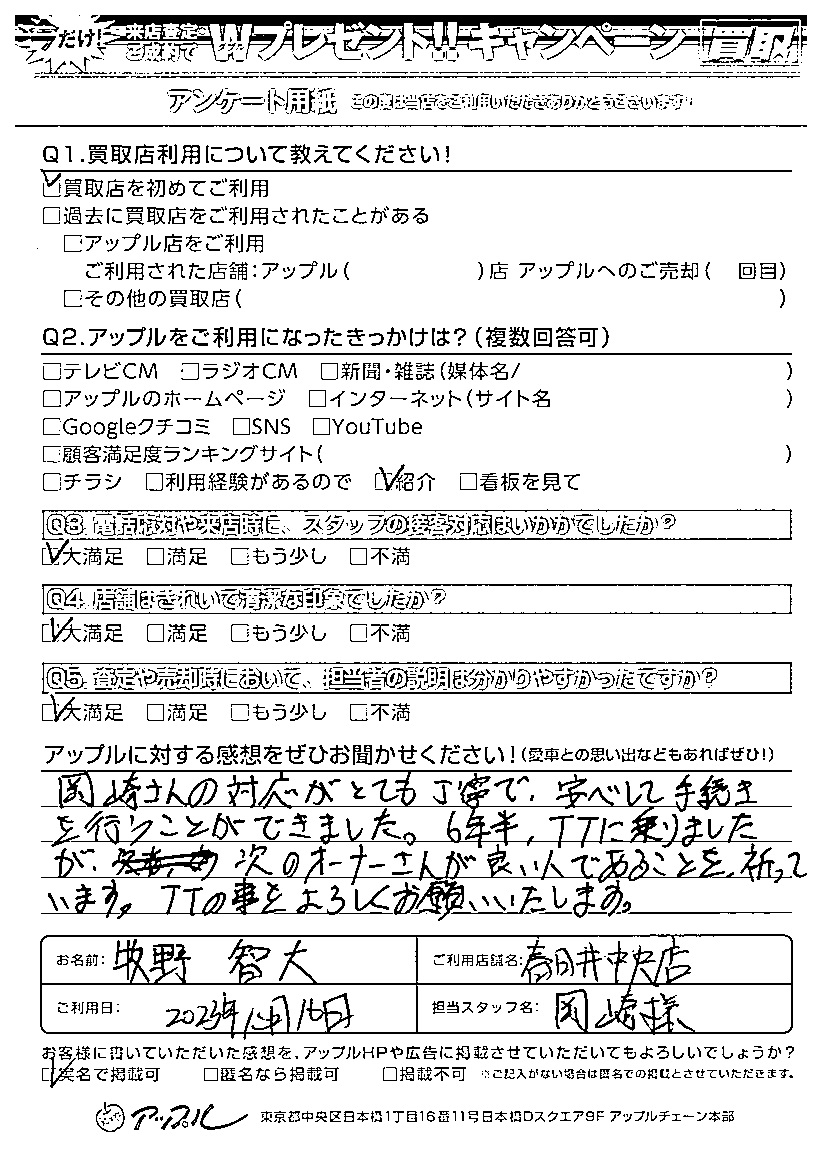 だけ! 来店査定・ご成約で Wプレゼント!! キャンペーン 買取
アンケート用紙 この度は当店をご利用いただきありがとうございます!
Q1.買取店利用について教えてください!
☑買取店を初めてご利用
□過去に買取店をご利用されたことがある
□アップル店をご利用
ご利用された店舗:アップル( )店 アップルへのご売却( 回目)
□その他の買取店( )
Q2.アップルをご利用になったきっかけは?(複数回答可)
□テレビCM □ラジオCM □新聞・雑誌(媒体名/ )
□アップルのホームページ □インターネット(サイト名 )
□Googleクチコミ □SNS □YouTube
□顧客満足度ランキングサイト( )
□チラシ □利用経験があるので ☑紹介 □看板を見て
Q3.電話応対や来店時に、スタッフの接客対応はいかがでしたか?
☑大満足 □満足 □もう少し □不満
Q4.店舗はきれいで清潔な印象でしたか?
☑大満足 □満足 □もう少し □不満
Q5.査定や売却時において、担当者の説明は分かりやすかったですか?
☑大満足 □満足 □もう少し □不満
アップルに対する感想をぜひお聞かせください!(愛車との思い出などもあればぜひ!)
岡崎さんの対応がとても丁寧で、安心して手続き
を行うことができました。6年半、TTに乗りました
が、次のオーナーさんが良い人であることを祈って
います。TTの事をよろしくお願いいたします。
お名前: 牧野 智大 ご利用店舗名: 春日井中央店
ご利用日: 2023年12月16日 担当スタッフ名: 岡崎様
お客様に書いていただいた感想を、アップルHPや広告に掲載させていただいてもよろしいでしょうか?
☑実名で掲載可 □匿名なら掲載可 □掲載不可 ※ご記入がない場合は匿名での掲載とさせていただきます。
アップル 東京都中央区日本橋1丁目16番11号日本橋Dスクエア9F アップルチェーン本部